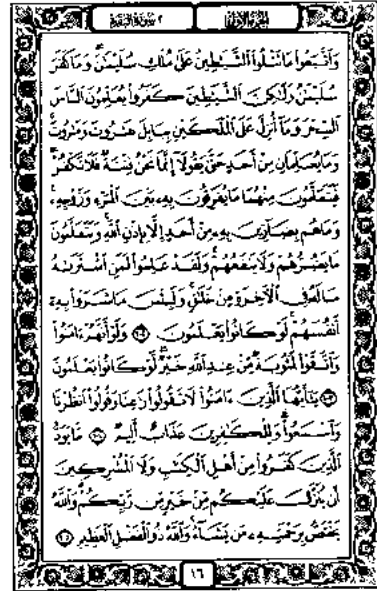 الجزء الأول
٢ سورة البقرة
وَٱتَّبَعُوا۟ مَا تَتْلُوا۟ ٱلشَّيَـٰطِينُ عَلَىٰ مُلْكِ سُلَيْمَـٰنَ ۖ وَمَا كَفَرَ
سُلَيْمَـٰنُ وَلَـٰكِنَّ ٱلشَّيَـٰطِينَ كَفَرُوا۟ يُعَلِّمُونَ ٱلنَّاسَ
ٱلسِّحْرَ وَمَآ أُنزِلَ عَلَى ٱلْمَلَكَيْنِ بِبَابِلَ هَـٰرُوتَ وَمَـٰرُوتَ ۚ
وَمَا يُعَلِّمَانِ مِنْ أَحَدٍ حَتَّىٰ يَقُولَآ إِنَّمَا نَحْنُ فِتْنَةٌ فَلَا تَكْفُرْ ۖ
فَيَتَعَلَّمُونَ مِنْهُمَا مَا يُفَرِّقُونَ بِهِۦ بَيْنَ ٱلْمَرْءِ وَزَوْجِهِۦ ۚ
وَمَا هُم بِضَآرِّينَ بِهِۦ مِنْ أَحَدٍ إِلَّا بِإِذْنِ ٱللَّهِ ۚ وَيَتَعَلَّمُونَ
مَا يَضُرُّهُمْ وَلَا يَنفَعُهُمْ ۚ وَلَقَدْ عَلِمُوا۟ لَمَنِ ٱشْتَرَىٰهُ
مَا لَهُۥ فِى ٱلْـَٔاخِرَةِ مِنْ خَلَـٰقٍ ۚ وَلَبِئْسَ مَا شَرَوْا۟ بِهِۦٓ
أَنفُسَهُمْ ۚ لَوْ كَانُوا۟ يَعْلَمُونَ ۝١٠٢ وَلَوْ أَنَّهُمْ ءَامَنُوا۟
وَٱتَّقَوْا۟ لَمَثُوبَةٌ مِّنْ عِندِ ٱللَّهِ خَيْرٌ ۖ لَّوْ كَانُوا۟ يَعْلَمُونَ
۝١٠٣ يَـٰٓأَيُّهَا ٱلَّذِينَ ءَامَنُوا۟ لَا تَقُولُوا۟ رَٰعِنَا وَقُولُوا۟ ٱنظُرْنَا
وَٱسْمَعُوا۟ ۗ وَلِلْكَـٰفِرِينَ عَذَابٌ أَلِيمٌ ۝١٠٤ مَّا يَوَدُّ
ٱلَّذِينَ كَفَرُوا۟ مِنْ أَهْلِ ٱلْكِتَـٰبِ وَلَا ٱلْمُشْرِكِينَ
أَن يُنَزَّلَ عَلَيْكُم مِّنْ خَيْرٍ مِّن رَّبِّكُمْ ۗ وَٱللَّهُ
يَخْتَصُّ بِرَحْمَتِهِۦ مَن يَشَآءُ ۚ وَٱللَّهُ ذُو ٱلْفَضْلِ ٱلْعَظِيمِ ۝١٠٥
١٦